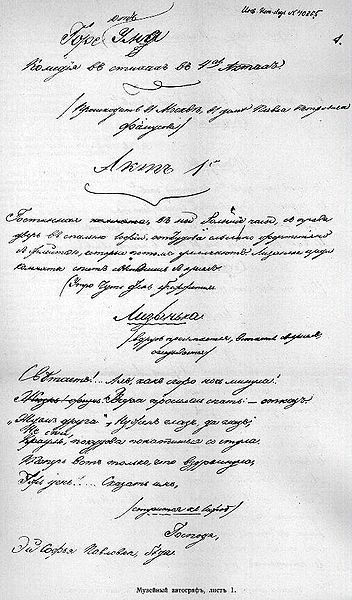 отъ
Горе Ума
1.
Комедія въ стихахъ въ 4хъ Актахъ
(Происходитъ въ Москвѣ, въ домѣ Павла
Фамусова)
Актъ 1й
Гостинная комната, въ ней часы, съ права
дверь въ спальню Софьи, откудова слышно фортопіано
съ потомъ Лизанька среди
комнаты спитъ
(Утро чуть день брежжится)
Лизынька
(вдругъ просыпается, встаетъ съ креселъ,
оглядывается)
Свѣтаетъ!.. Ахъ, какъ скоро ночь минула!
Вчера просилась спать – отказъ
„Ждемъ друга“ Нуженъ глазъ, да глазъ;
Не спи
покудова скатишься со стула.
Теперь вотъ только, что вздремнула,
Ужъ день!... Сказать имъ,
(стучится къ Софьѣ)
Господа,
Эй Софья Павловна, бѣда.
Музейный автографъ, листъ 1.